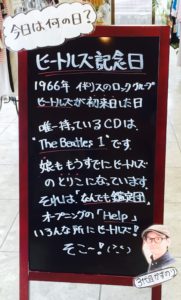 今日は何の日?
ビートルズ記念日
1966年 イギリスのロックグループ
ビートルズが初来日した日
唯一持っているCDは、
"The Beatles 1"です
娘ももうすでにビートルズ
のとりこになっています
それは「なんでも鑑定団」
オープニングの「Help」
いろんな所にビートルズ!
そこ〜!(^^)